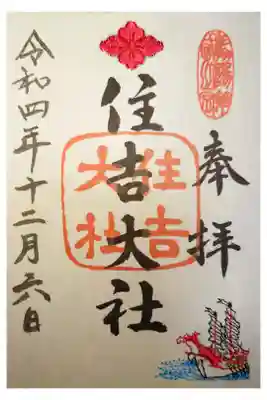 奉拝
住吉大社
住吉
大社
令和四年十二月六日